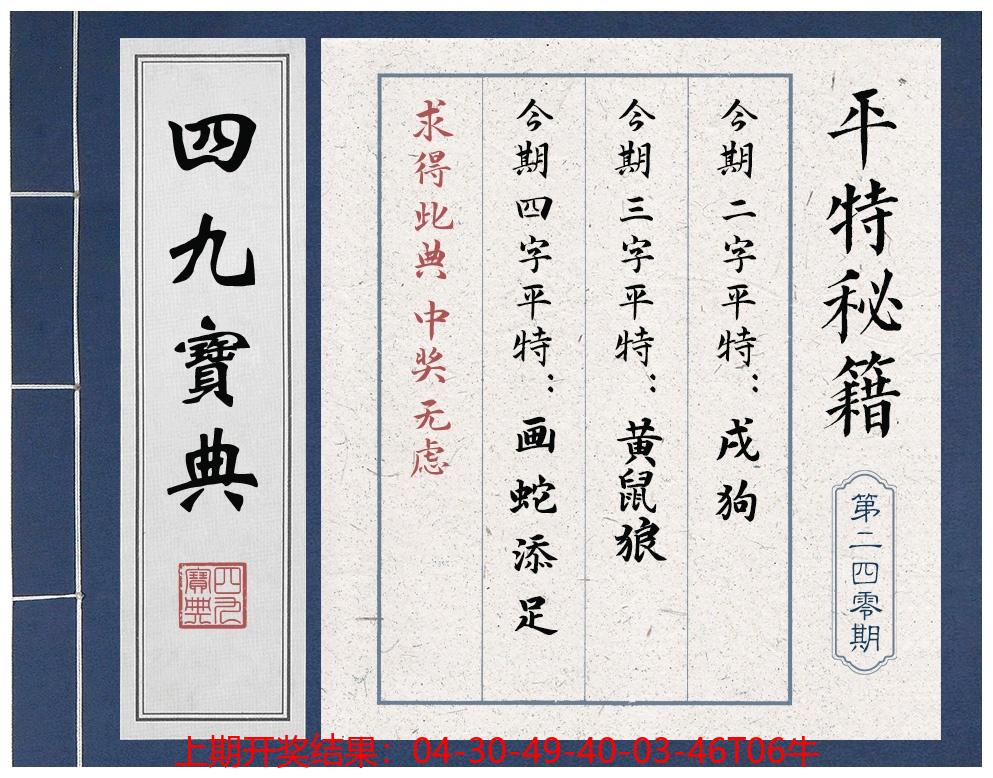 平特秘籍
第二四零期
今期二字平特：戌狗
今期三字平特：黄鼠狼
今期四字平特：画蛇添足
求得此典 中奖无虑
四九寶典
四九
寶典
上期开奖结果：04-30-49-40-03-46T06牛